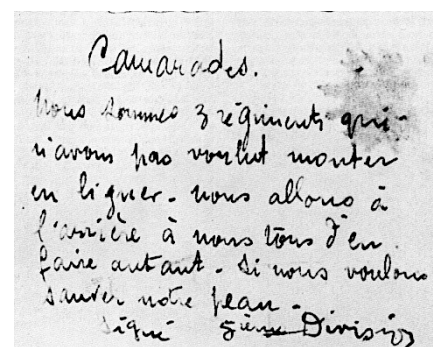 Camarades.
Nous sommes 3 régiments qui
n'avons pas voulut monter
en ligner. nous allons à
l'arrière à nous tous d'en
faire autant. si nous voulons
sauver notre peau.
Signé 5ième Division